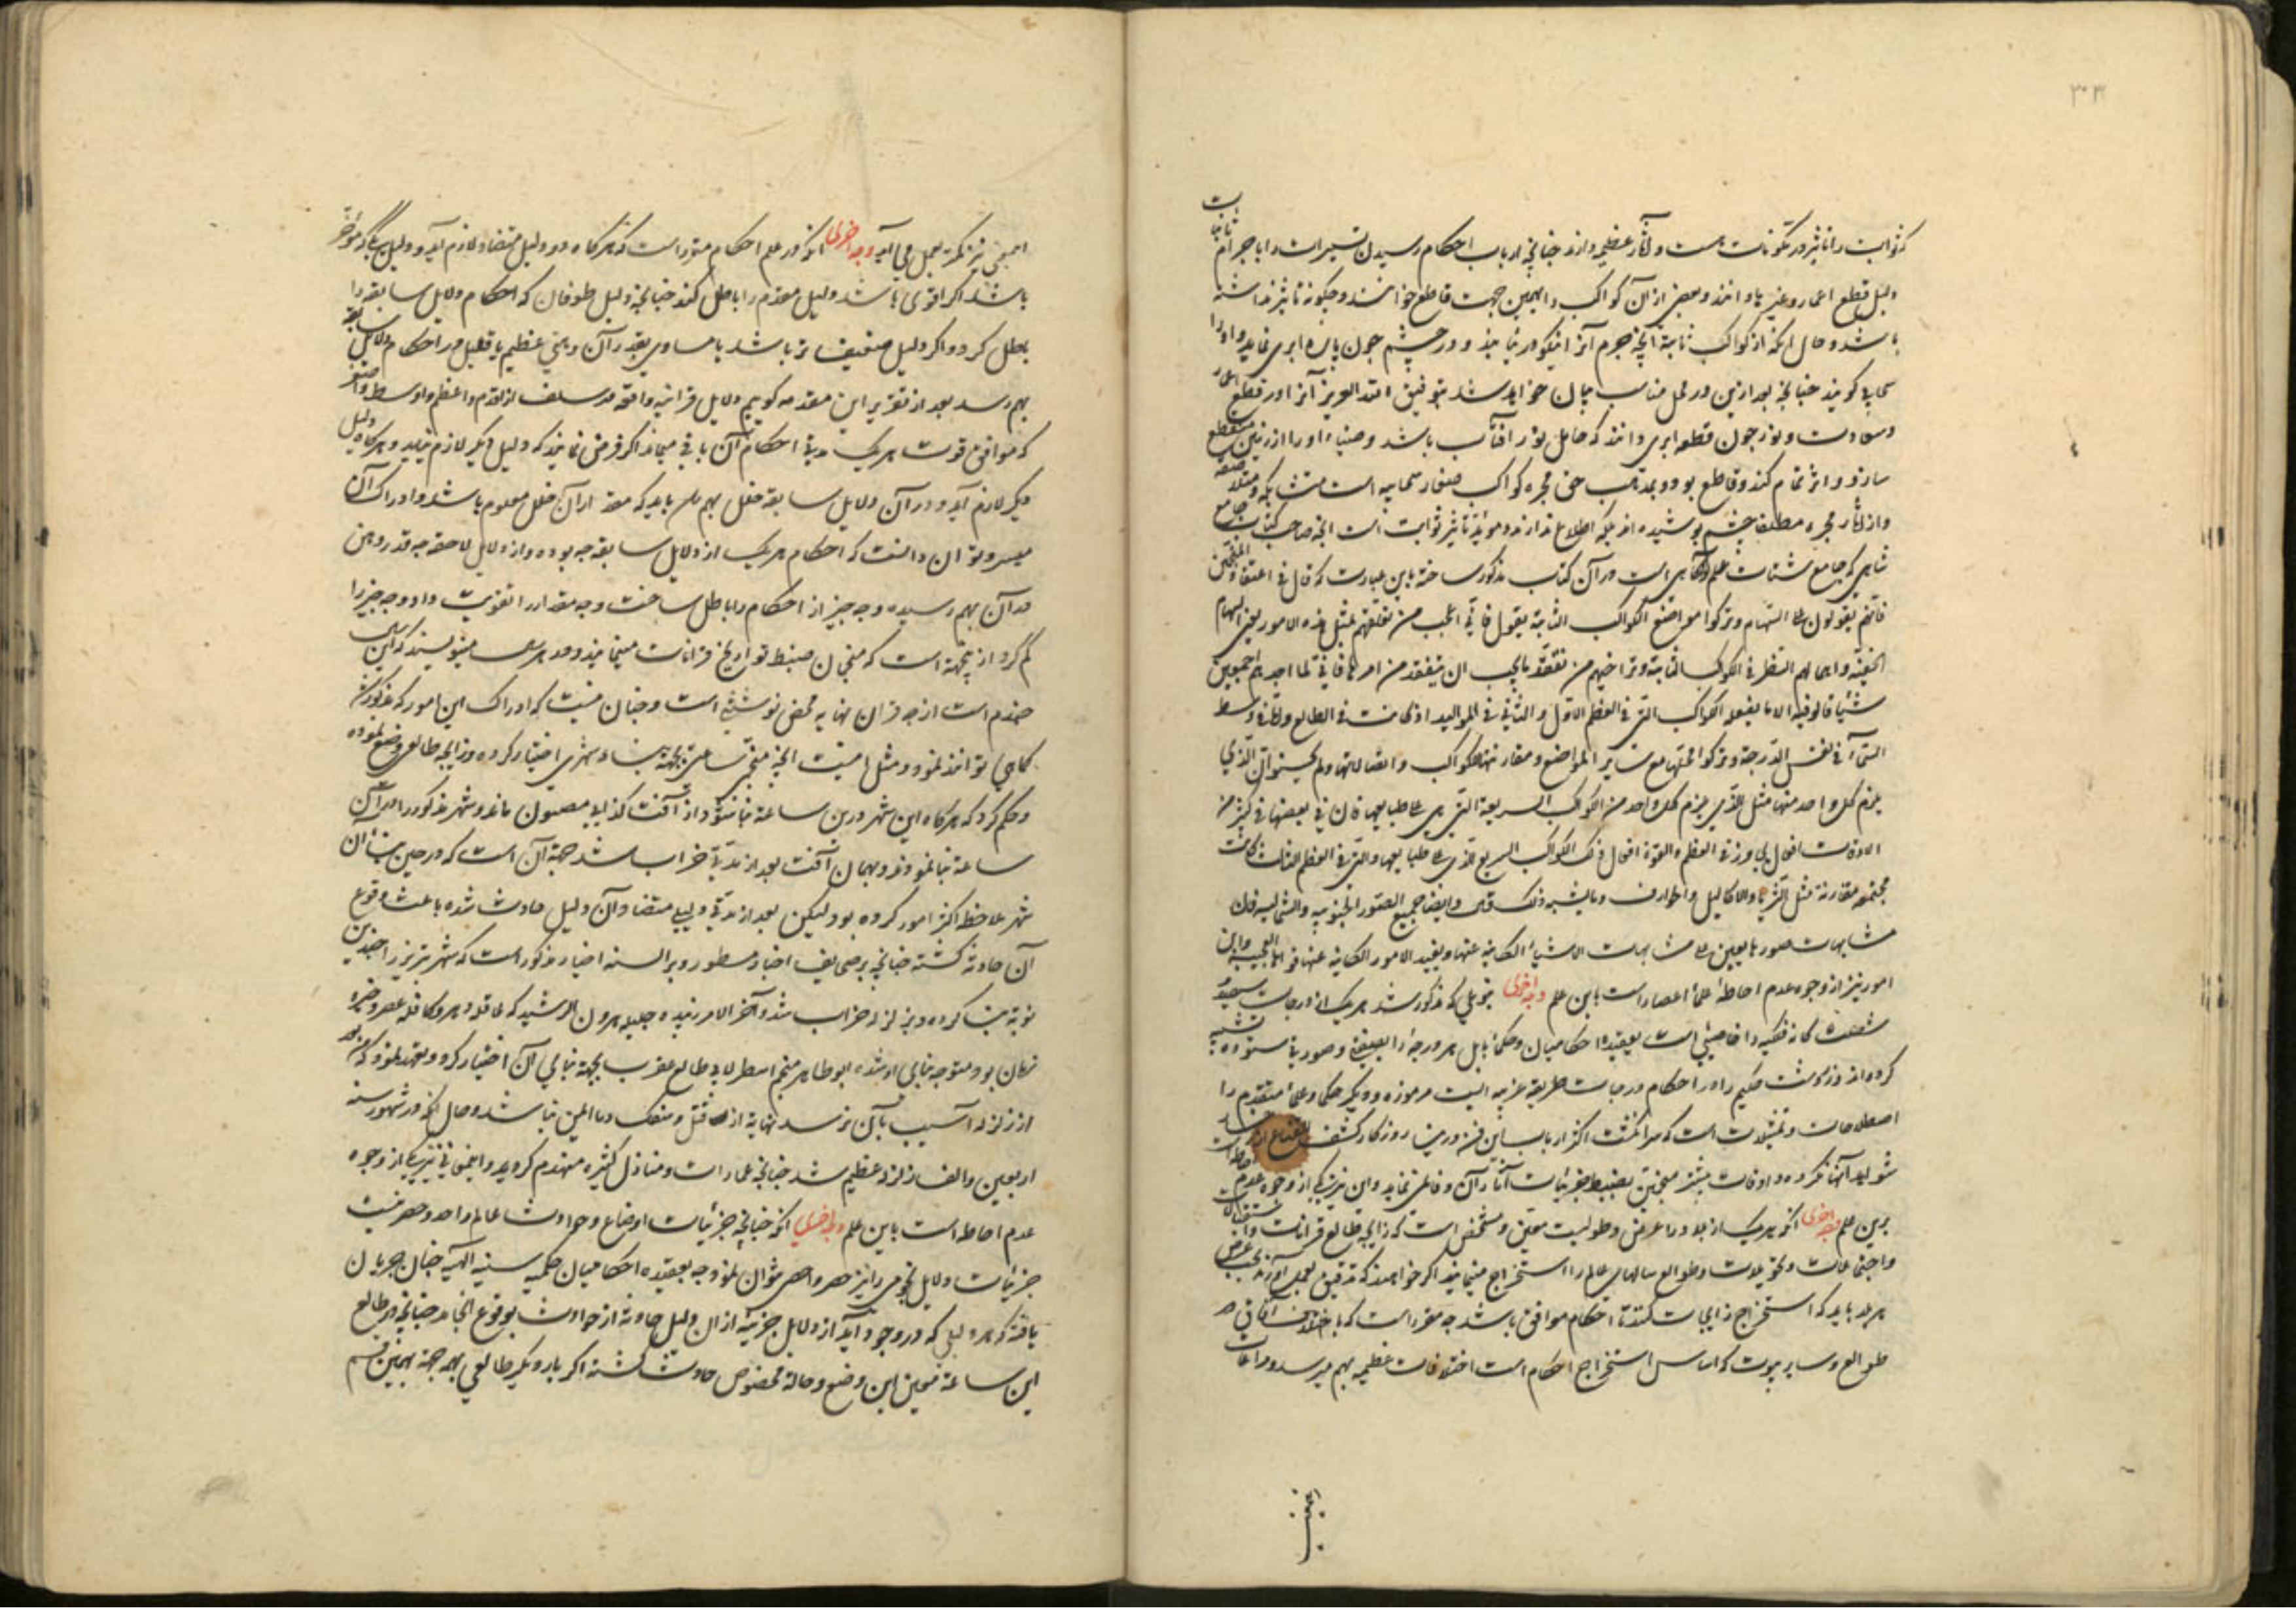 ۳۰۳
که ثوابت را تاثیر در تکونات هست و آثار عظیمه دارند چنانچه ارباب احکام رسیدن تسییرات را باجرام ثابتات
دلیل قطع اعمار و غیرها دانند و بعضی از آن کواکب را بهمین جهت قاطع خوانند و چگونه تاثیر نداشته
باشد و حال آنکه از کواکب ثابته آنچه جرم آنرا نیکو در نیابند و در چشم چون پاره ابری نماید و او را
سحابی گویند چنانچه بعد ازین در محل مناسب بیان خواهد شد بتوفیق الله العزیز آنرا در قطع اعمار
و نور چون قطعه ابری دانند که حامل نور آفتاب باشد و ضیاء او را از زمین منقطع
سازد و اثر تمام کند و قاطع بود و بمذهب حق مجره کواکب صغار سحابیه است متشابکه
و از آثار مجره مطلقا چشم پوشیده اند بلکه اطلاع ندارند و مؤید تاثیر ثوابت است آنچه صاحب کتاب جامع
شاهی که جامع شتات علم است در آن کتاب مذکور ساخته باین عبارت که قال فی اعتقاد المنجمین
فانهم یقولون علی السهام و ترکوا مواضع الکواکب الثابتة یقول فانی اعجب من تعلقهم بمثل هذه الامور یعنی السهام
الخفیة و اهمالهم النظر فی الکواکب الثابتة و تراخیهم من تفقد ما یجب ان یتفقد من امرها فانی لما اجد لهم اجمعین
شیئا قالوه فیه الا ما یفعله الکواکب التی فی العظم الاول و الثانی فی الموالید اذا کانت فی الطالع و فی وسط
السماء فی نفس الدرجة و ترکوا سایر المواضع و مقارنتها للکواکب و اتصالاتها و لم یحسنوا ان الذی
یلزم کل واحد منها مثل الذی یلزم کل واحد من الکواکب السریعة التی هی علی طبایعها فان فی بعضها فی کثیر من
الاوقات افعال فی العظم و القوة افعال ذلک الکواکب السریع الذی علی طبایعها و التی فی العظم الثالث اذا کانت
مجتمعة متقارنة مثل الثریا و الاکالیل و اطواف و ما یشبه ذلک و ایضا جمیع الصور الجنوبیة و الشمالیة فان
مشابهات صورها یعین علی مشابهات الاشیاء الکاینة عنها و یفید الامور الکاینة عنها قواها العجیبة و این
امور نیز از وجوه عدم احاطه علماء اعصار است باین علم وجه اخری بنوعی که مذکور شد هر یک از درجات سیصد
شصت گانه فلکیه را خاصیتی است بعقیده احکامیان و حکماء بابل هر درجه را بصفتی و صورتی ستوده تشبیه
کرده اند و زردشت حکیم را در احکام درجات طریقه غریبه ایست مرموزه و دیگر حکما و علماء متقدم را
اصطلاحات و تمثیلات است که سر انگشت اکثر ارباب این فن درین روزگار کشف القناع از رخسار
شواید آنها نکرده و اوقات بیشتر منجمین بضبط جزئیات آثار آن وفا نمی نماید و این نیز یکی از وجوه عدم احاطه است
برین علم وجه اخری آنکه هر یک از بلاد را عرض و طولیست معین و مشخص است که زایجه طالع قرانات و استقبالات
و اجتماعات و تحویلات و طوالع سالهای عالم را استخراج مینمایند اگر خواهند که تدقیق بعمل آورند بحسب عرض
هر بلد باید که استخراج زایجات کنند تا احکام موافق باشد چه مقرر است که باختلاف آفاق در
طوالع و سایر بیوت که اساس استخراج احکام است اختلافات عظیمه بهم میرسد و مراعات
اینمعنی
اینمعنی نیز کمتر بعمل می آید وجه اخری آنکه در علم احکام مقرر است که هرگاه دو دلیل متضاد لازم آید و دلیلی دیگر مؤخر
باشد اگر اقوی باشد دلیل مقدم را باطل کند چنانچه دلیل طوفان که احکام دلایل سابقه را
باطل کرد و اگر دلیل ضعیف تر باشد یا مساوی بقدر آن وهنی عظیم یا قلیل در احکام دلایل سابقه
بهم رسد بعد از تقریر این مقدمه گوییم دلایل قرانیه واقعه در سلف از اقدم و اعظم و اوسط و اصغر
که موافق قوت هر یک مدتی احکام آن باقی میماند اگر فرض نمایند که دلیل دیگر لازم نیاید و هرگاه دلیل
دیگر لازم آید و در آن دلایل سابقه خلل بهم رسد باید که مقدار آن خلل معلوم باشد و ادراک آن
میسر و توان دانست که احکام هر یک از دلایل سابقه چه بوده و از دلایل لاحقه چه قدر وهن
در آن بهم رسیده و چه چیز از احکام را باطل ساخت و چه مقدار را تقویت داد و چه چیز را
کم کرد ازینجهة است که منجمان ضبط تواریخ قرانات مینمایند و در هر مینویسند که این
چندم است از چه قران نهایه محض نوشتنی است و چنان نیست که ادراک این امور که مذکور شد
کماهی توانند نمود و مثل اینست آنچه منجم ساعتی بجهة بناء شهری اختیار کرده و زایجه طالعی وضع نموده
و حکم کرد که هرگاه این شهر درین ساعة بنا شود از آفت کذایی مصون ماند و شهر مذکور را در آن
ساعة بنا نمودند و بهمان آفت بعد از مدتی خراب شد جهة آن است که در حین بناء آن
شهر ملاحظه اکثر امور کرده بود لیکن بعد از مدتی دلیلی متضاد آن دلیل حادث شده باعث وقوع
آن حادثه گشته چنانچه بر صحایف اخبار مسطور و بر السنه اخیار مذکور است که شهر تبریز را چندین
نوبة بنا کرده و بزلزله خراب شد و آخر الامر زبیده جلیله هرون الرشید که عاقله دهر و کافله عصر و خیره
زمان بود متوجه بنای او شده ابو طاهر منجم اسطرلابی طالع عقرب بجهة بنای آن اختیار کرد و تعهد نمود که من بعد
از زلزله آسیب بآن نرسد نهایة از قتل و سفک دما ایمن نباشد و حال آنکه در شهور سنه
اربعین و الف زلزله عظیم شد چنانچه عمارات و منازل کثیره منهدم گردید و اینمعنی نیز یکی از وجوه
عدم احاطه است باین علم وجه اخری آنکه چنانچه جزئیات اوضاع و حوادث عالم را حد و حصر نیست
جزئیات دلایل نجومی را نیز حصر و احصی نتوان نمود چه بعقیده احکامیان حکمیه سنیه الهیه چنان جریان
یافته که هر دلیلی که در وجود آید از دلایل جزئیه از آن دلیل حادثه از حوادث بوقوع انجامد چنانچه در طالع
این ساعة معین این وضع و حالة مخصوص حادث گشته اگر بار دیگر طالعی بهمه جهة بهمین قسم